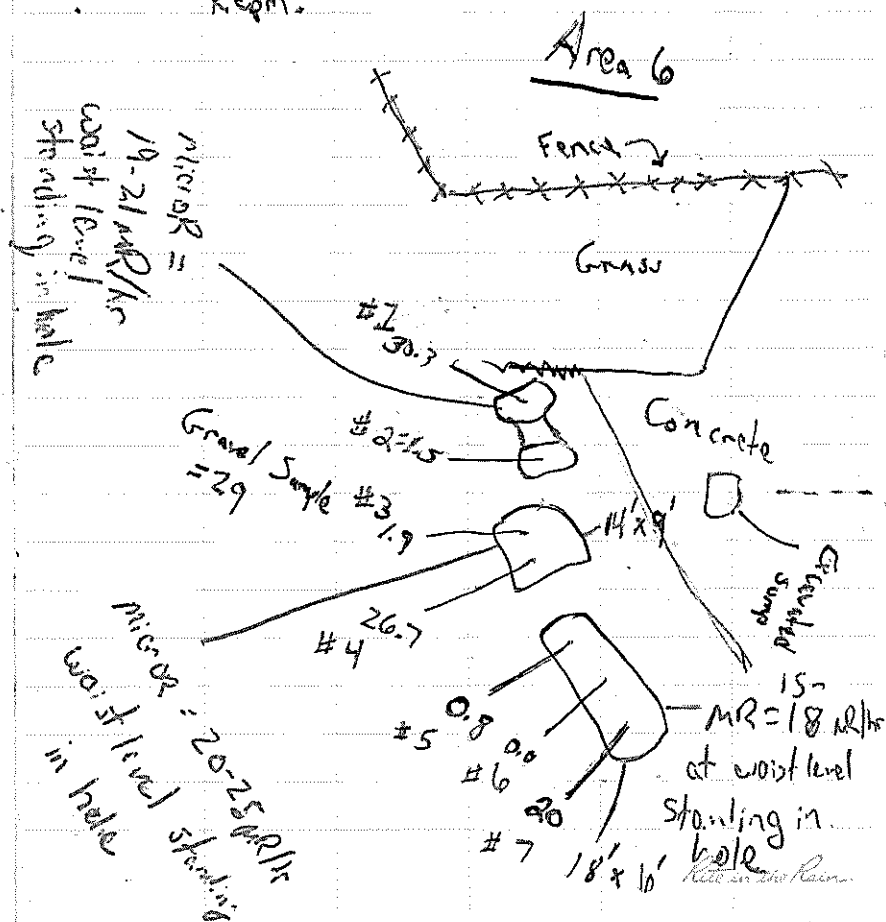 Area 6
Fence
Grass
microR =
19-21 μR/hr
waist level
standing in hole
#1
30.3
#2=1.5
Concrete
Gravel Sample
=29
#3
1.9
14' x 9'
Excavated
sump
26.7
#4
microR = 20-25 μR/hr
waist level standing
in hole
0.8
#5
0.0
#6
20
#7
18' x 10'
15-
MR = 18 μR/hr
at waist level
standing in
hole
Rite in the Rain.